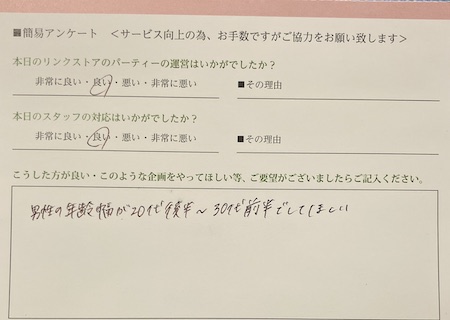 ■簡易アンケート <サービス向上の為、お手数ですがご協力をお願い致します>
本日のリンクストアのパーティーの運営はいかがでしたか?
非常に良い・良い・悪い・非常に悪い ■その理由
本日のスタッフの対応はいかがでしたか?
非常に良い・良い・悪い・非常に悪い ■その理由
こうした方が良い・このような企画をやってほしい等、ご要望がございましたらご記入ください。
男性の年齢幅が20代後半~30代前半でしてほしい